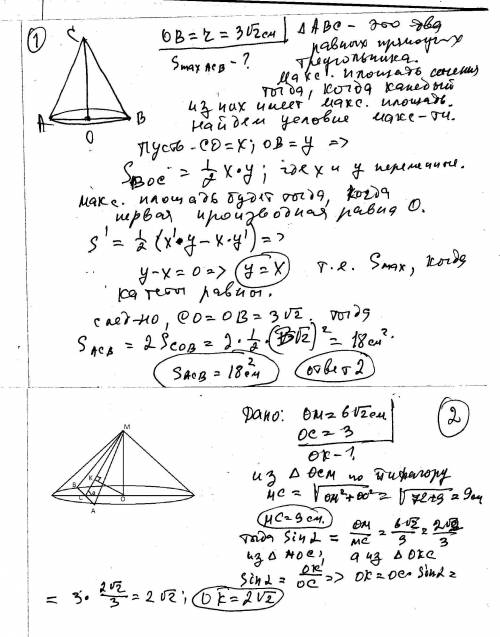 1
C
A
B
O
OB = r = 3√2 см
S max ACB - ?
Δ ABC - это два
равных прямоуг-х
треугольника.
Макс. площадь сечения
тогда, когда каждый
из них имеет макс. площадь.
Найдем условие макс-ти.
Пусть CO = x; OB = y =>
S BOC = 1/2 x·y; где x и y переменные.
макс. площадь будет тогда, когда
первая производная равна 0.
S' = 1/2 (x'·y - x·y') =>
y - x = 0 => y = x т.е. Smax, когда
катеты равны.
след-но, CO = OB = 3√2. тогда
S ACB = 2 S COB = 2·1/2·(3√2)² = 18 см².
S ACB = 18 см² ответ 2
2
Дано: OM = 6√2 см
OC = 3
OK - ?
M
K
B
C
a
O
A
из Δ OCM по Пифагору
MC = √OM² + OC² = √72+9 = 9 см
MC = 9 см.
тогда Sin α = OM/MC = 6√2/9 = 2√2/3
из Δ MOC, а из Δ OKC
Sin α = OK/OC => OK = OC·Sin α =
= 3·2√2/3 = 2√2; OK = 2√2